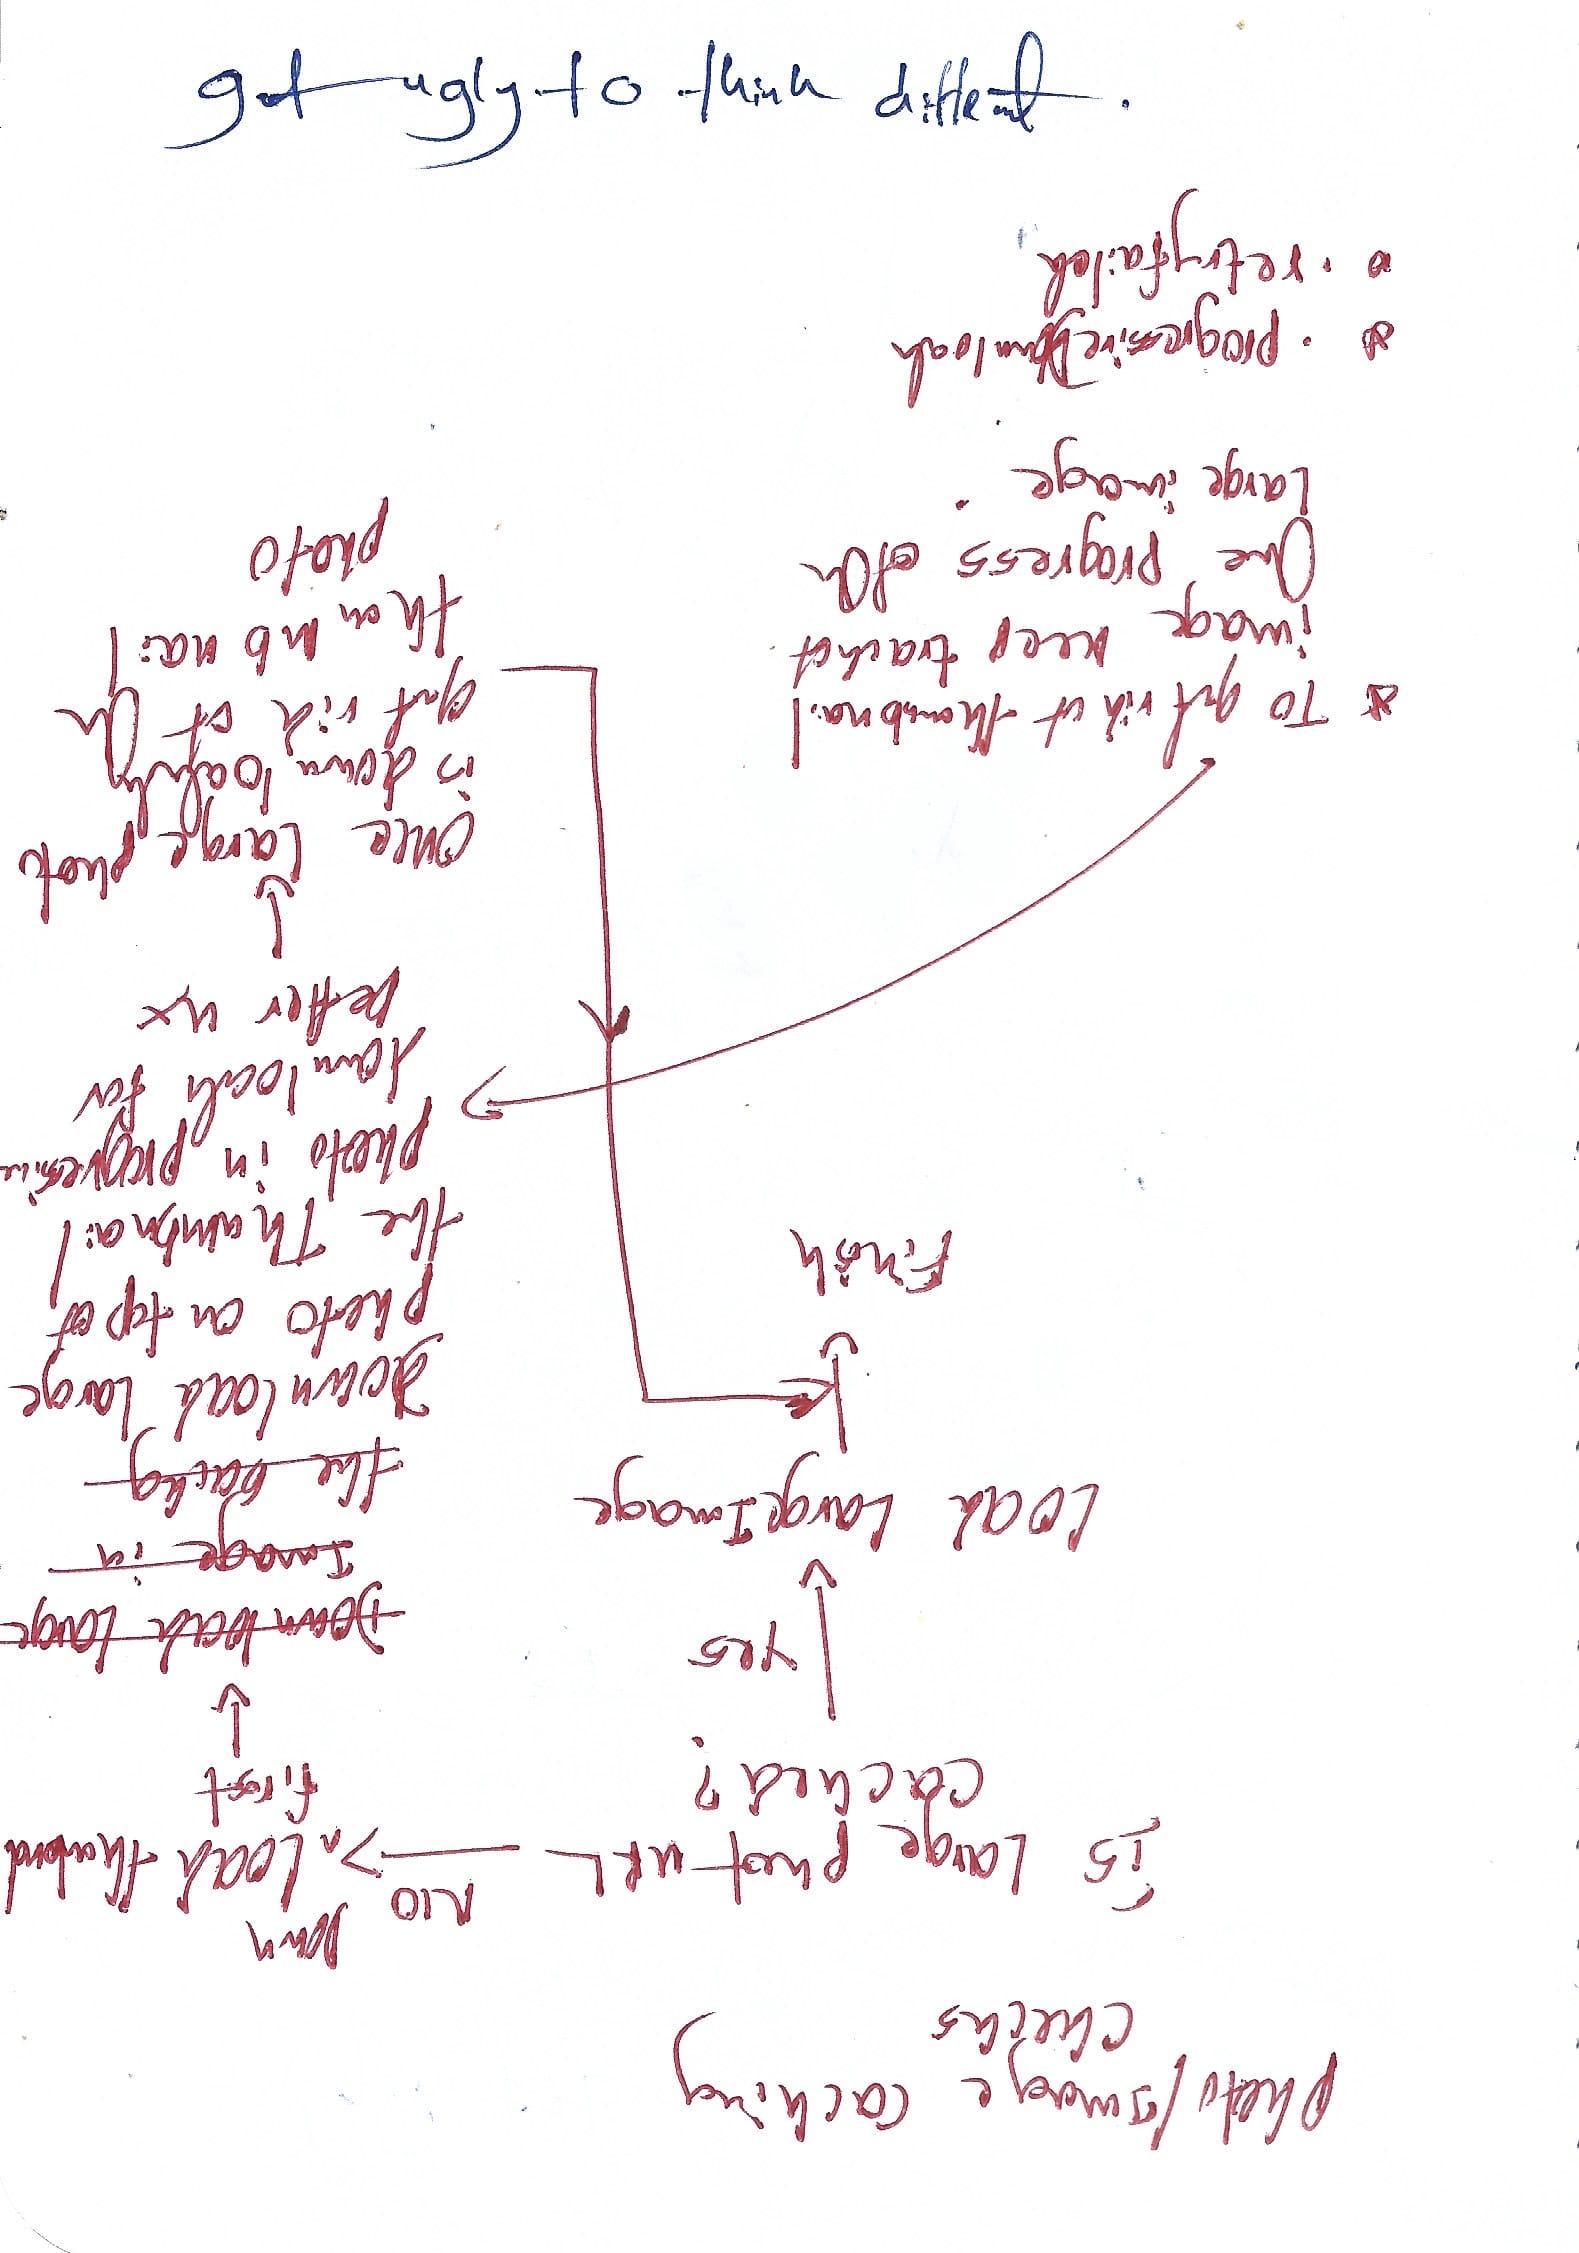 Photo/Image caching
checks
Is Large phot URL
cached?
NO
Down
Load thumbnail
first
YES
Load Large Image
Finish
Download Large
Image in
the backg
Download Large
photo on top of
the Thumbnail
photo in progressive
download for
better UX
Once Large photo
is downloaded
get rid of the
thumbnail
photo
* To get rid of thumbnail
image keep track of
the progress of the
Large image.
* .progressiveDownload
* .retryfailed
get ugly to think different.